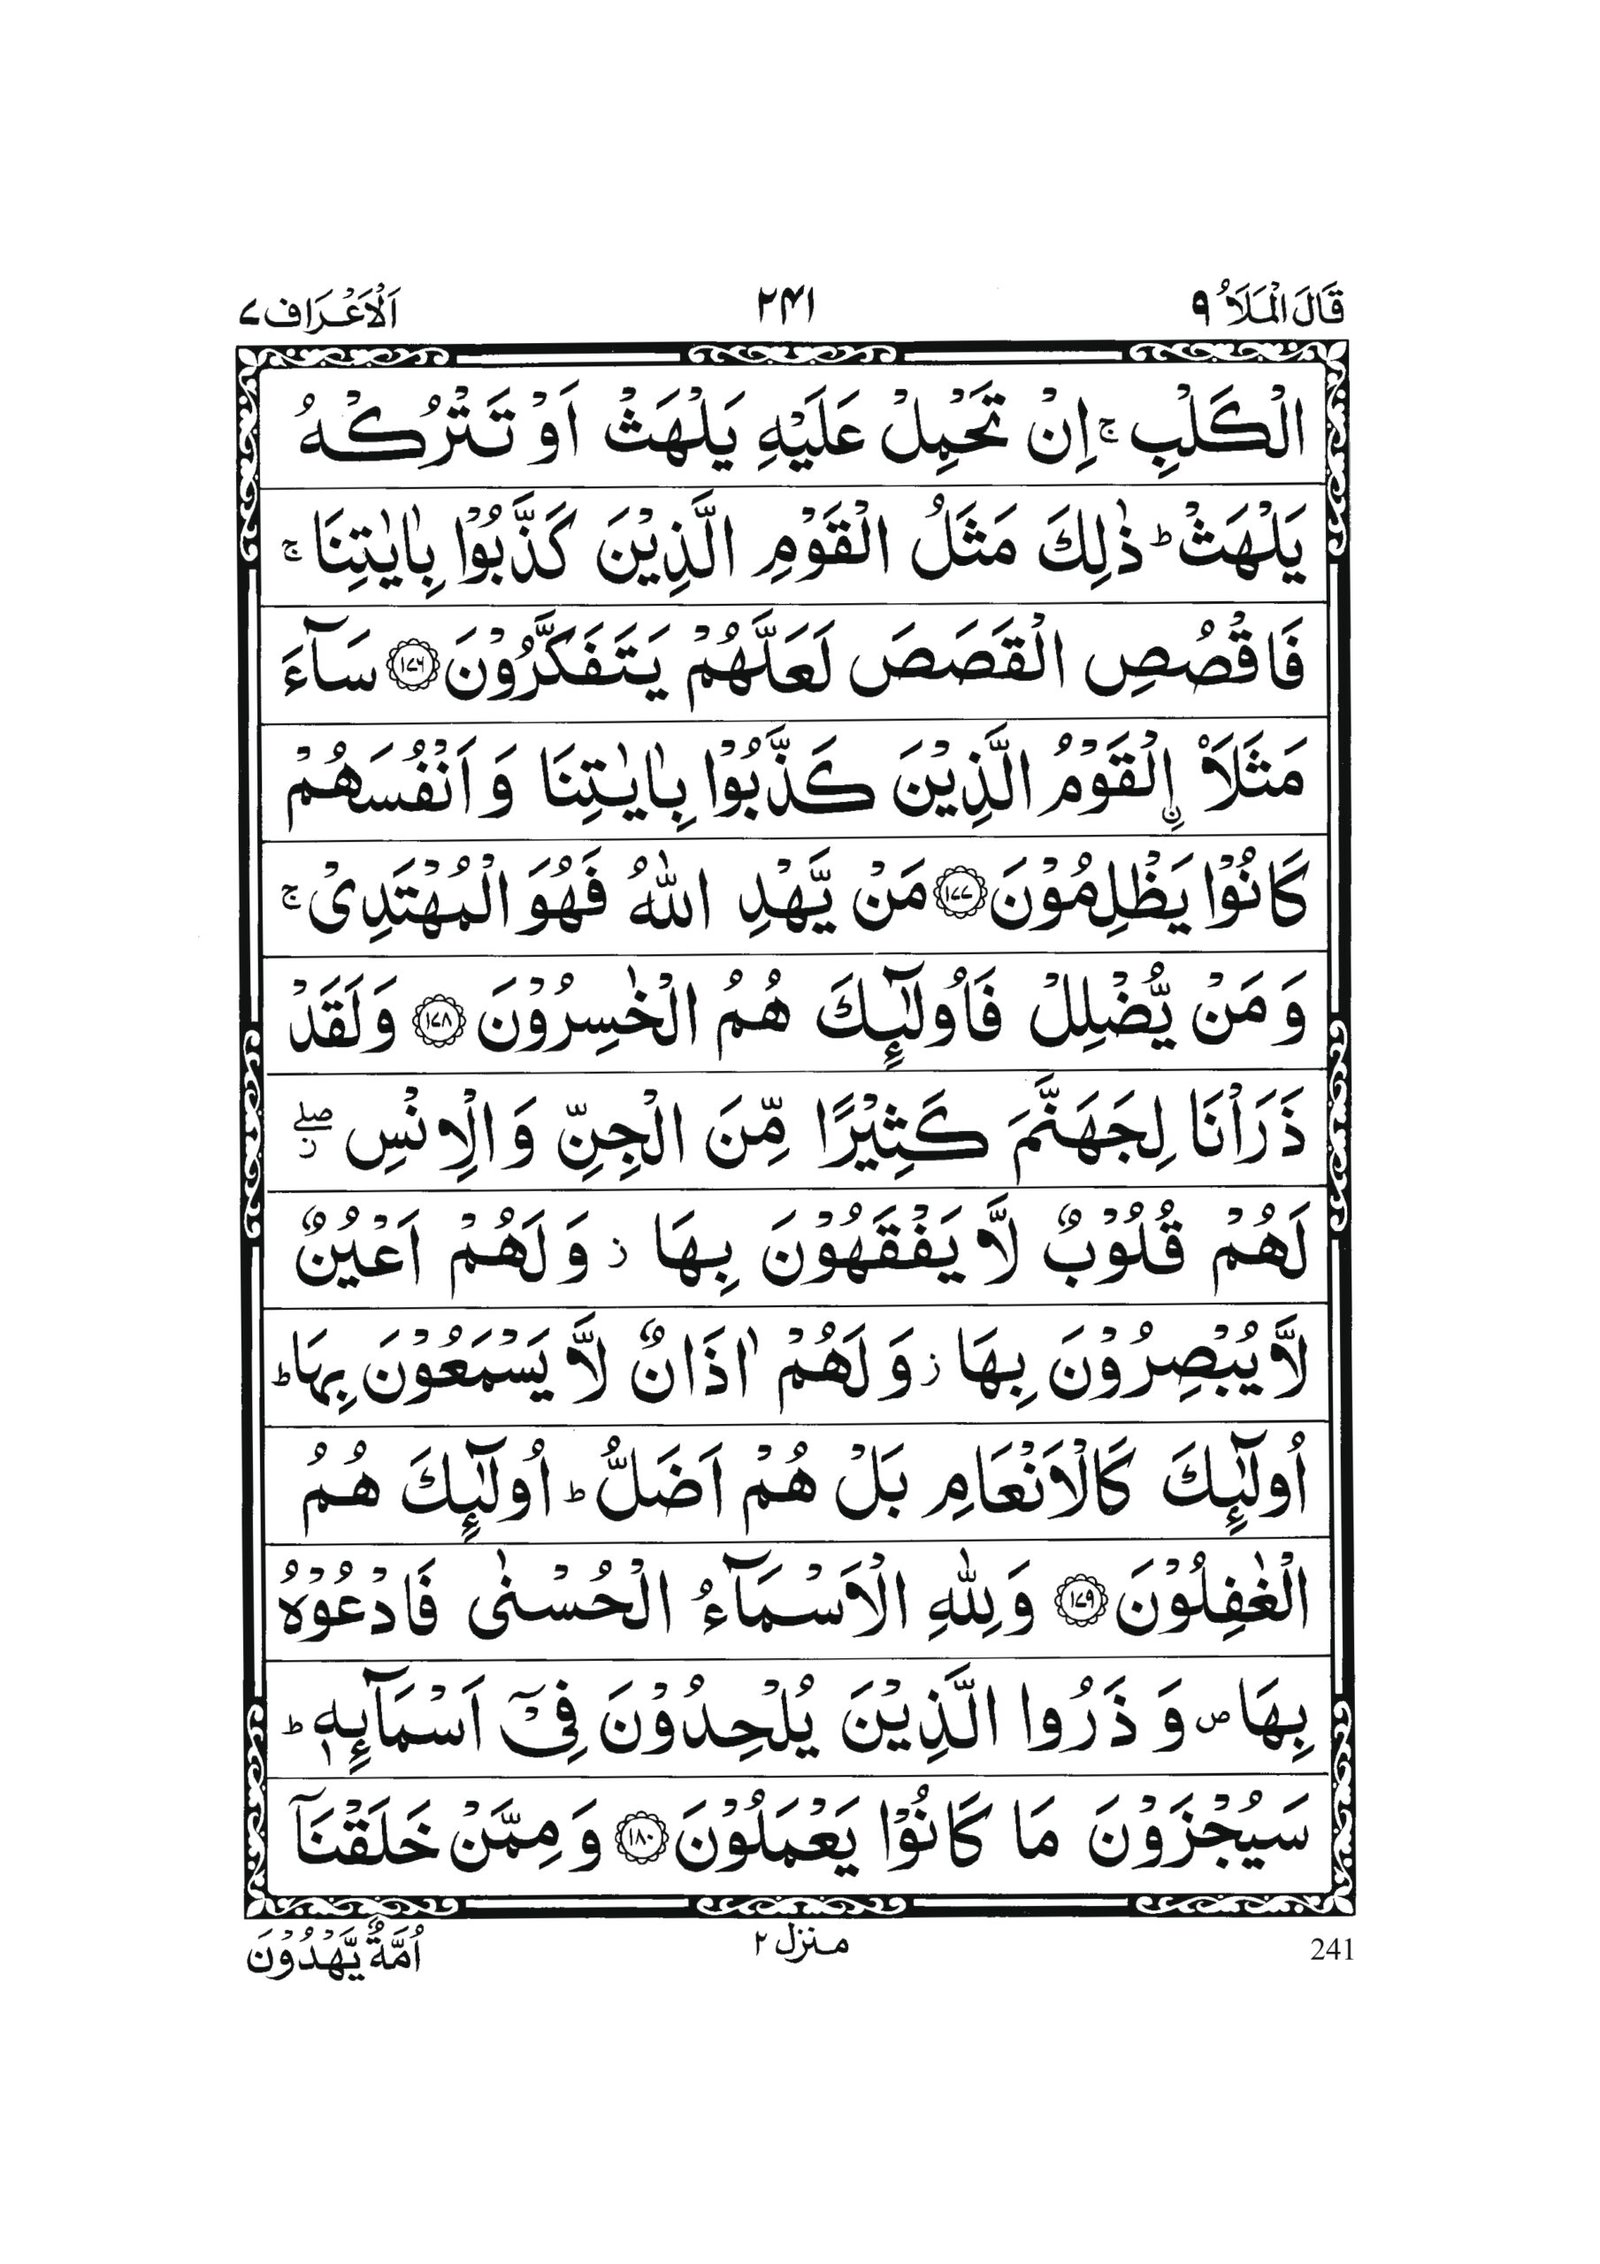 قَالَ الْمَلَاُ ۹ ۲۴۱ اَلْاَعْرَاف ۷
الْكَلْبِ ۚ اِنْ تَحْمِلْ عَلَيْهِ يَلْهَثْ اَوْ تَتْرُكْهُ
يَلْهَثْ ؕ ذٰلِكَ مَثَلُ الْقَوْمِ الَّذِيْنَ كَذَّبُوْا بِاٰيٰتِنَا ۚ
فَاقْصُصِ الْقَصَصَ لَعَلَّهُمْ يَتَفَكَّرُوْنَ ۝۱۷۶ سَآءَ
مَثَلَاۨ الْقَوْمُ الَّذِيْنَ كَذَّبُوْا بِاٰيٰتِنَا وَ اَنْفُسَهُمْ
كَانُوْا يَظْلِمُوْنَ ۝۱۷۷ مَنْ يَّهْدِ اللّٰهُ فَهُوَ الْمُهْتَدِىْ ۚ
وَ مَنْ يُّضْلِلْ فَاُولٰٓئِكَ هُمُ الْخٰسِرُوْنَ ۝۱۷۸ وَلَقَدْ
ذَرَاْنَا لِجَهَنَّمَ كَثِيْرًا مِّنَ الْجِنِّ وَالْاِنْسِ ۖ ز
لَهُمْ قُلُوْبٌ لَّا يَفْقَهُوْنَ بِهَا ز وَلَهُمْ اَعْيُنٌ
لَّا يُبْصِرُوْنَ بِهَا ز وَلَهُمْ اٰذَانٌ لَّا يَسْمَعُوْنَ بِهَا ؕ
اُولٰٓئِكَ كَالْاَنْعَامِ بَلْ هُمْ اَضَلُّ ؕ اُولٰٓئِكَ هُمُ
الْغٰفِلُوْنَ ۝۱۷۹ وَلِلّٰهِ الْاَسْمَآءُ الْحُسْنٰى فَادْعُوْهُ
بِهَا ص وَ ذَرُوا الَّذِيْنَ يُلْحِدُوْنَ فِىْۤ اَسْمَآئِهٖ ؕ
سَيُجْزَوْنَ مَا كَانُوْا يَعْمَلُوْنَ ۝۱۸۰ وَ مِمَّنْ خَلَقْنَاۤ
241 منزل ۲ اُمَّةٌ يَّهْدُوْنَ